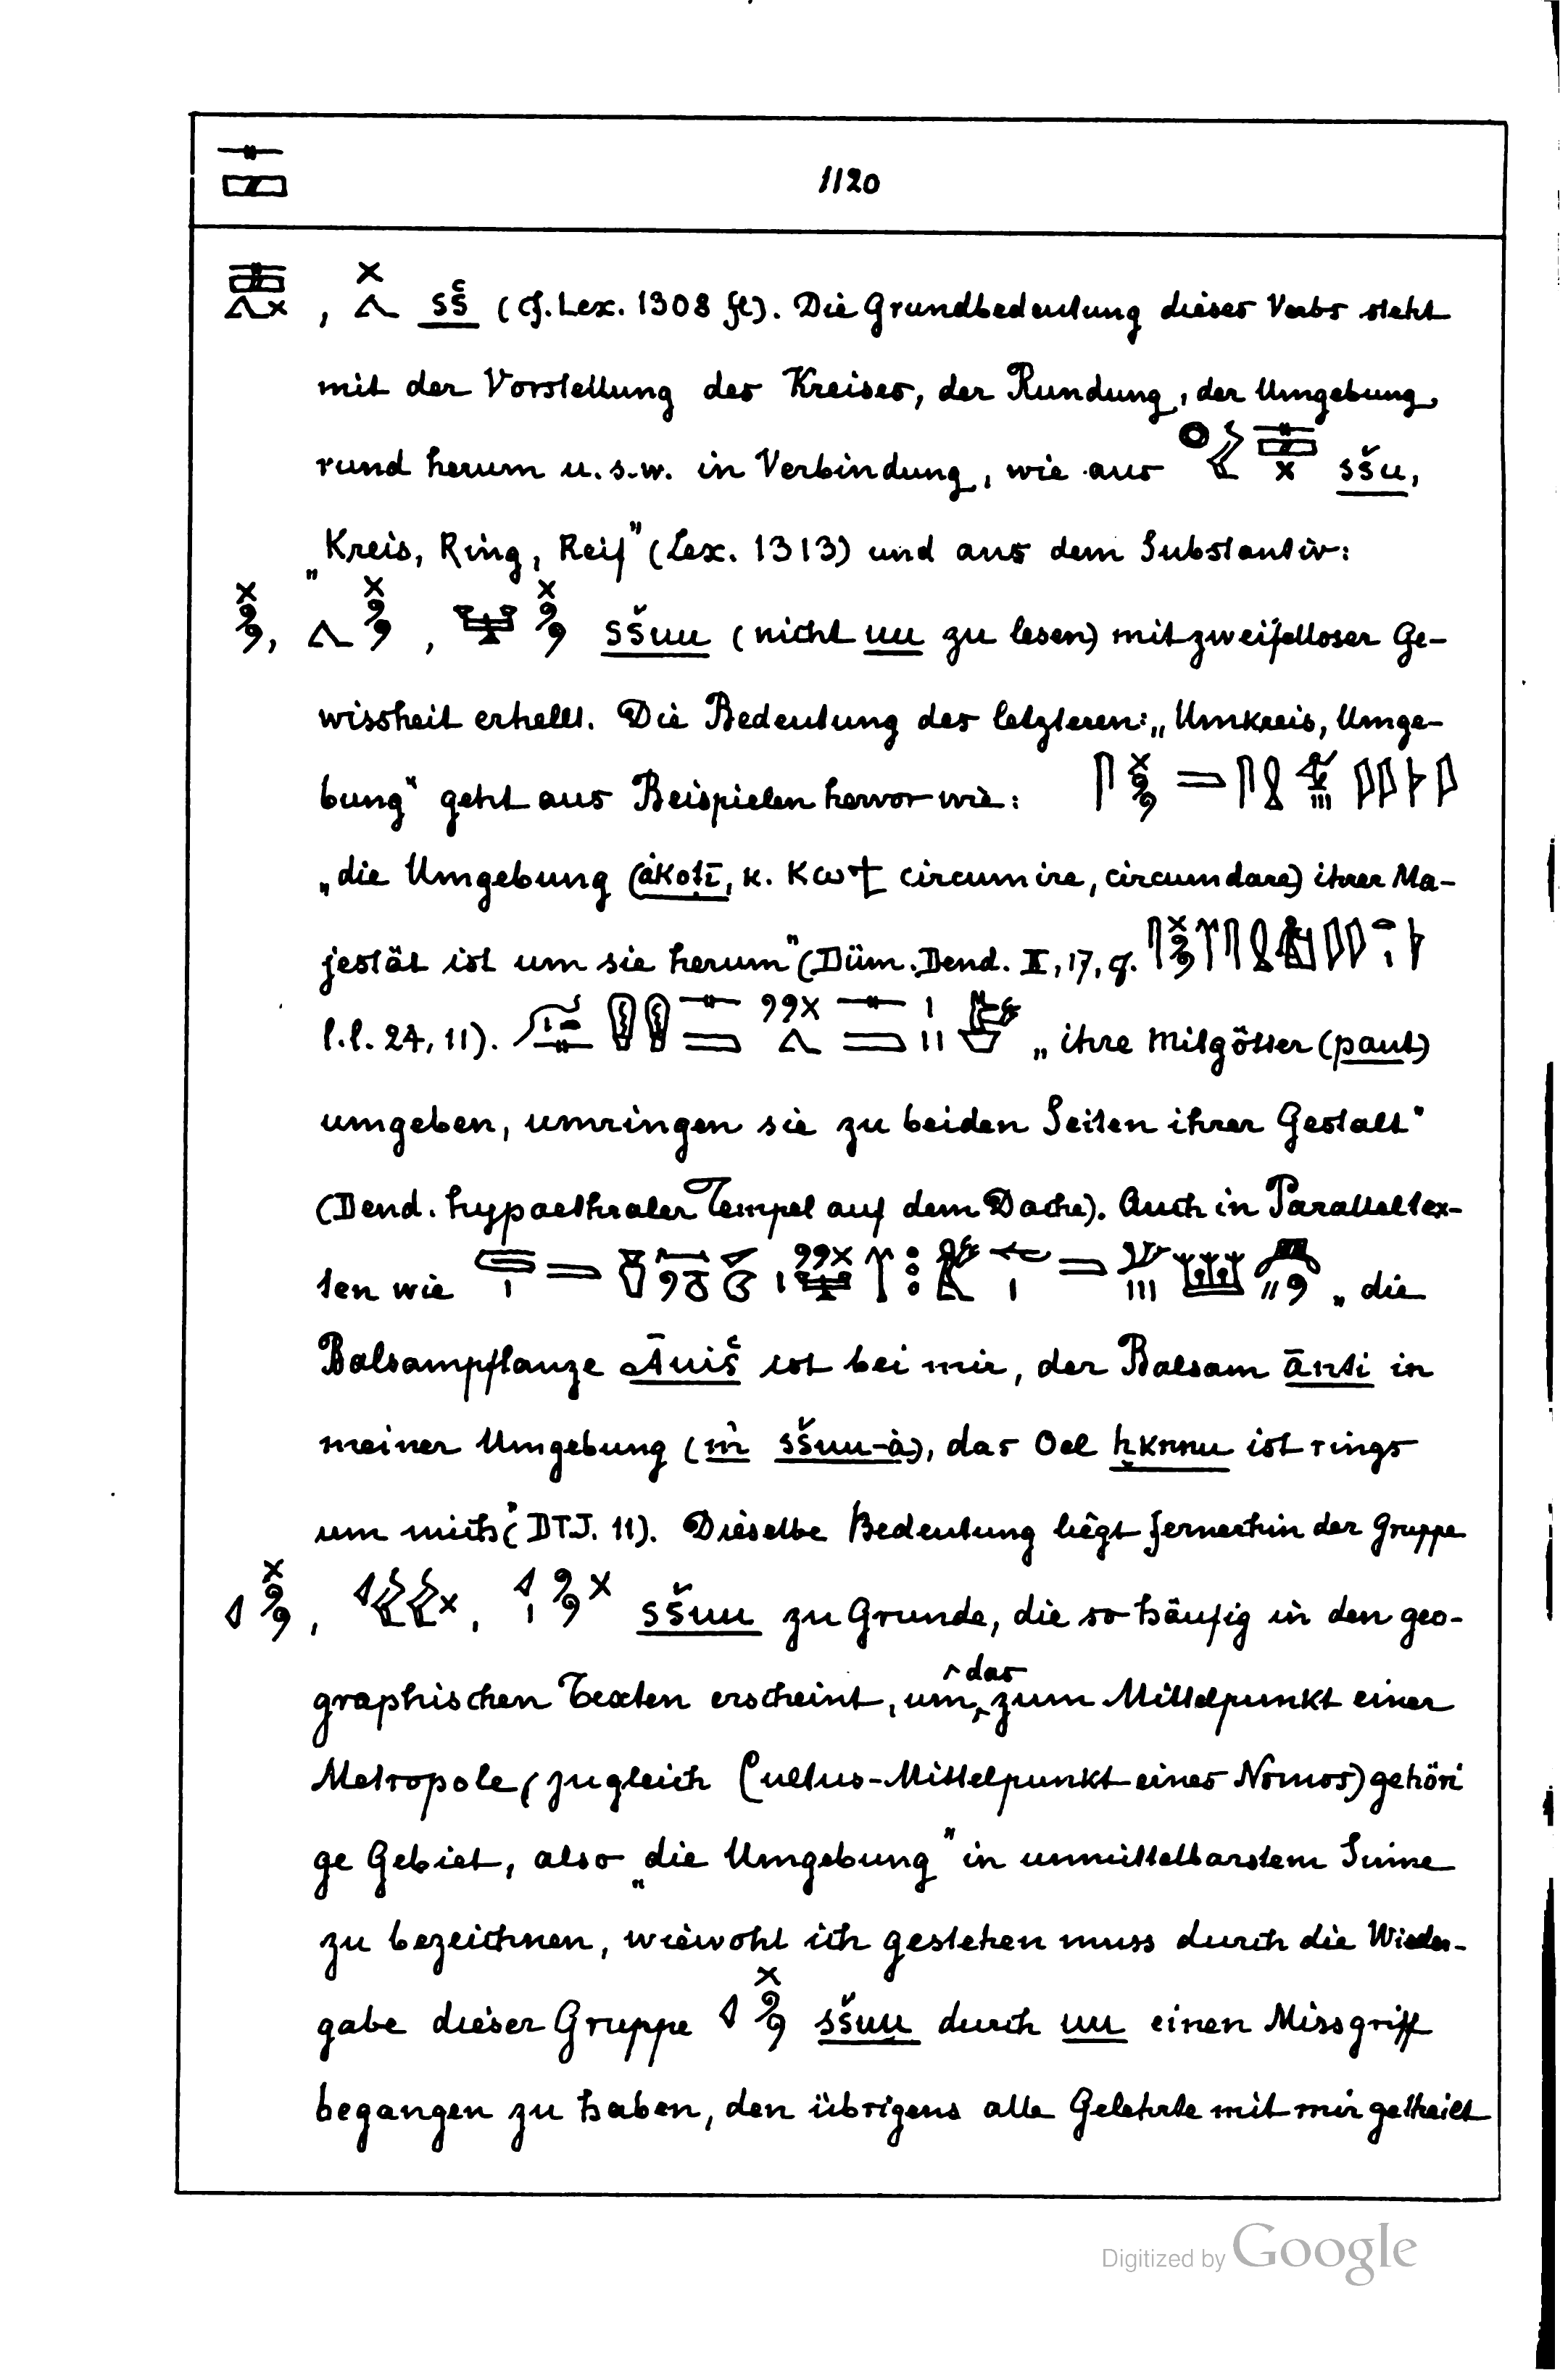 1120
sš (cf. Lex. 1308 fl). Die Grundbedeutung dieses Verbs steht
mit der Vorstellung des Kreises, der Rundung, der Umgebung,
rund herum u. s. w. in Verbindung, wie aus sšu,
„Kreis, Ring, Reif" (Lex. 1313) und aus dem Substantiv:
sšuu (nicht uu zu lesen) mit zweifelloser Ge-
wissheit erhellt. Die Bedeutung des letzteren: „Umkreis, Umge-
bung" geht aus Beispielen hervor wie:
„die Umgebung (ȧkotī, k. Kωϯ circumire, circumdare) ihrer Ma-
jestät ist um sie herum" (Düm. Dend. II, 17, cf.
l. l. 24, 11). „ihre Mitgötter (paut)
umgeben, umringen sie zu beiden Seiten ihrer Gestalt"
(Dend. hypaethraler Tempel auf dem Dache). Auch in Paralleltex-
ten wie „die
Balsampflanze Āuiš ist bei mir, der Balsam ānti in
meiner Umgebung (m sšuu-ȧ), das Oel ḥknnu ist rings
um mich" (DTJ. 11). Dieselbe Bedeutung liegt fernerhin der Gruppe
sšuu zu Grunde, die so häufig in den geo-
graphischen Texten erscheint, um das zum Mittelpunkt einer
Metropole (zugleich Cultus-Mittelpunkt eines Nomos) gehöri
ge Gebiet, also „die Umgebung" in unmittelbarstem Sinne
zu bezeichnen, wiewohl ich gestehen muss durch die Wieder-
gabe dieser Gruppe sšuu durch uu einen Missgriff
begangen zu haben, den übrigens alle Gelehrte mit mir getheilt
Digitized by Google